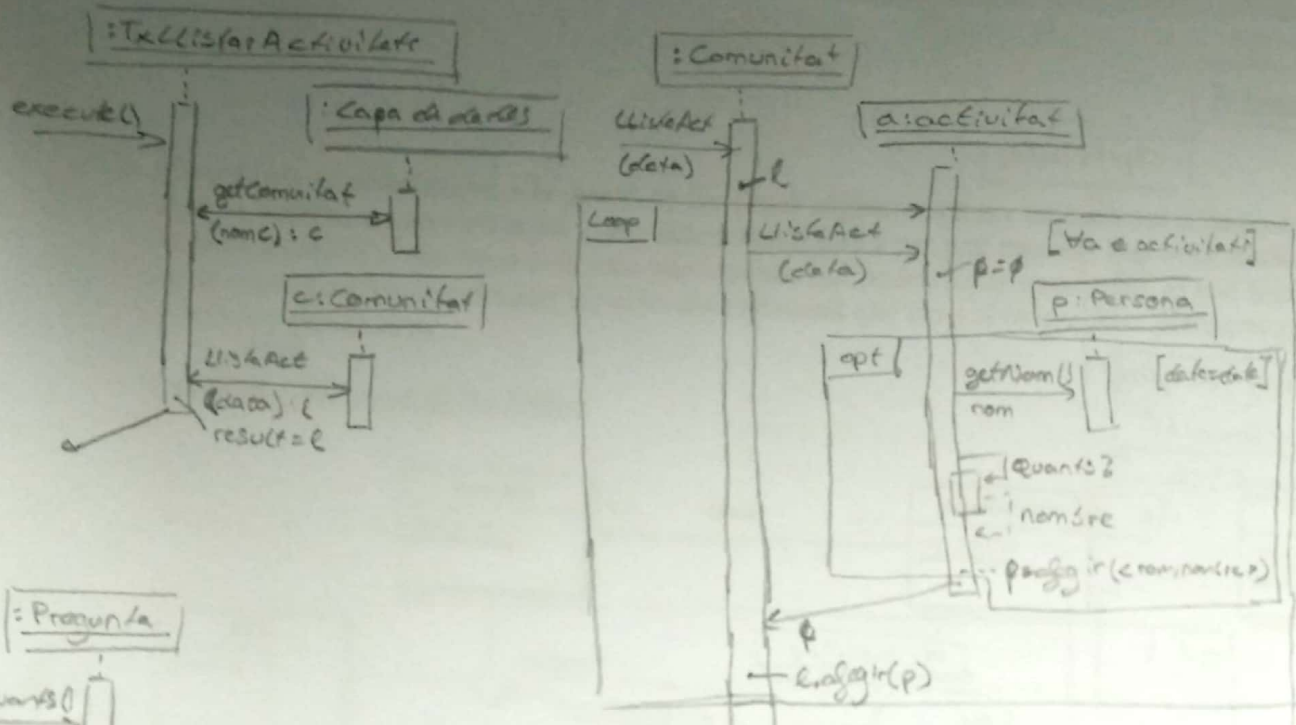 :TxLlistarActivitats
execute()
:Capa de dades
getComunitat
(nomC): c
c:Comunitat
LlistaAct
(data): l
result = l
:Pregunta
:Comunitat
LlistaAct
(data)
l
a:activitat
Loop
LlistaAct
(data)
[∀a ∈ activitats]
p=ø
p:Persona
opt
getNom()
nom
[data=data]
Quants?
nombre
p.afegir(<nom,nombre>)
p
l.afegir(p)